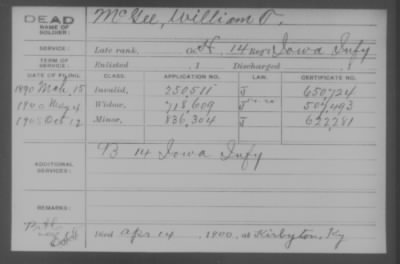 DEAD McGee, William T.
NAME OF SOLDIER:
SERVICE: Late rank, Co. H, 14 Reg't Iowa Infy
TERM OF SERVICE: Enlisted , 1 Discharged , 1
DATE OF FILING. CLASS. APPLICATION NO. LAW. CERTIFICATE NO.
1890 Mch. 15 Invalid, 250,511 J 650,724
1900 May 4 Widow, 718,609 J 507,493
1905 Oct 12 Minor, 836,304 J 622,281
ADDITIONAL SERVICES: B 14 Iowa Infy
REMARKS:
Died Apr 14, 1900, at Kirbyton, Ky